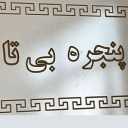 پنجره بی تا